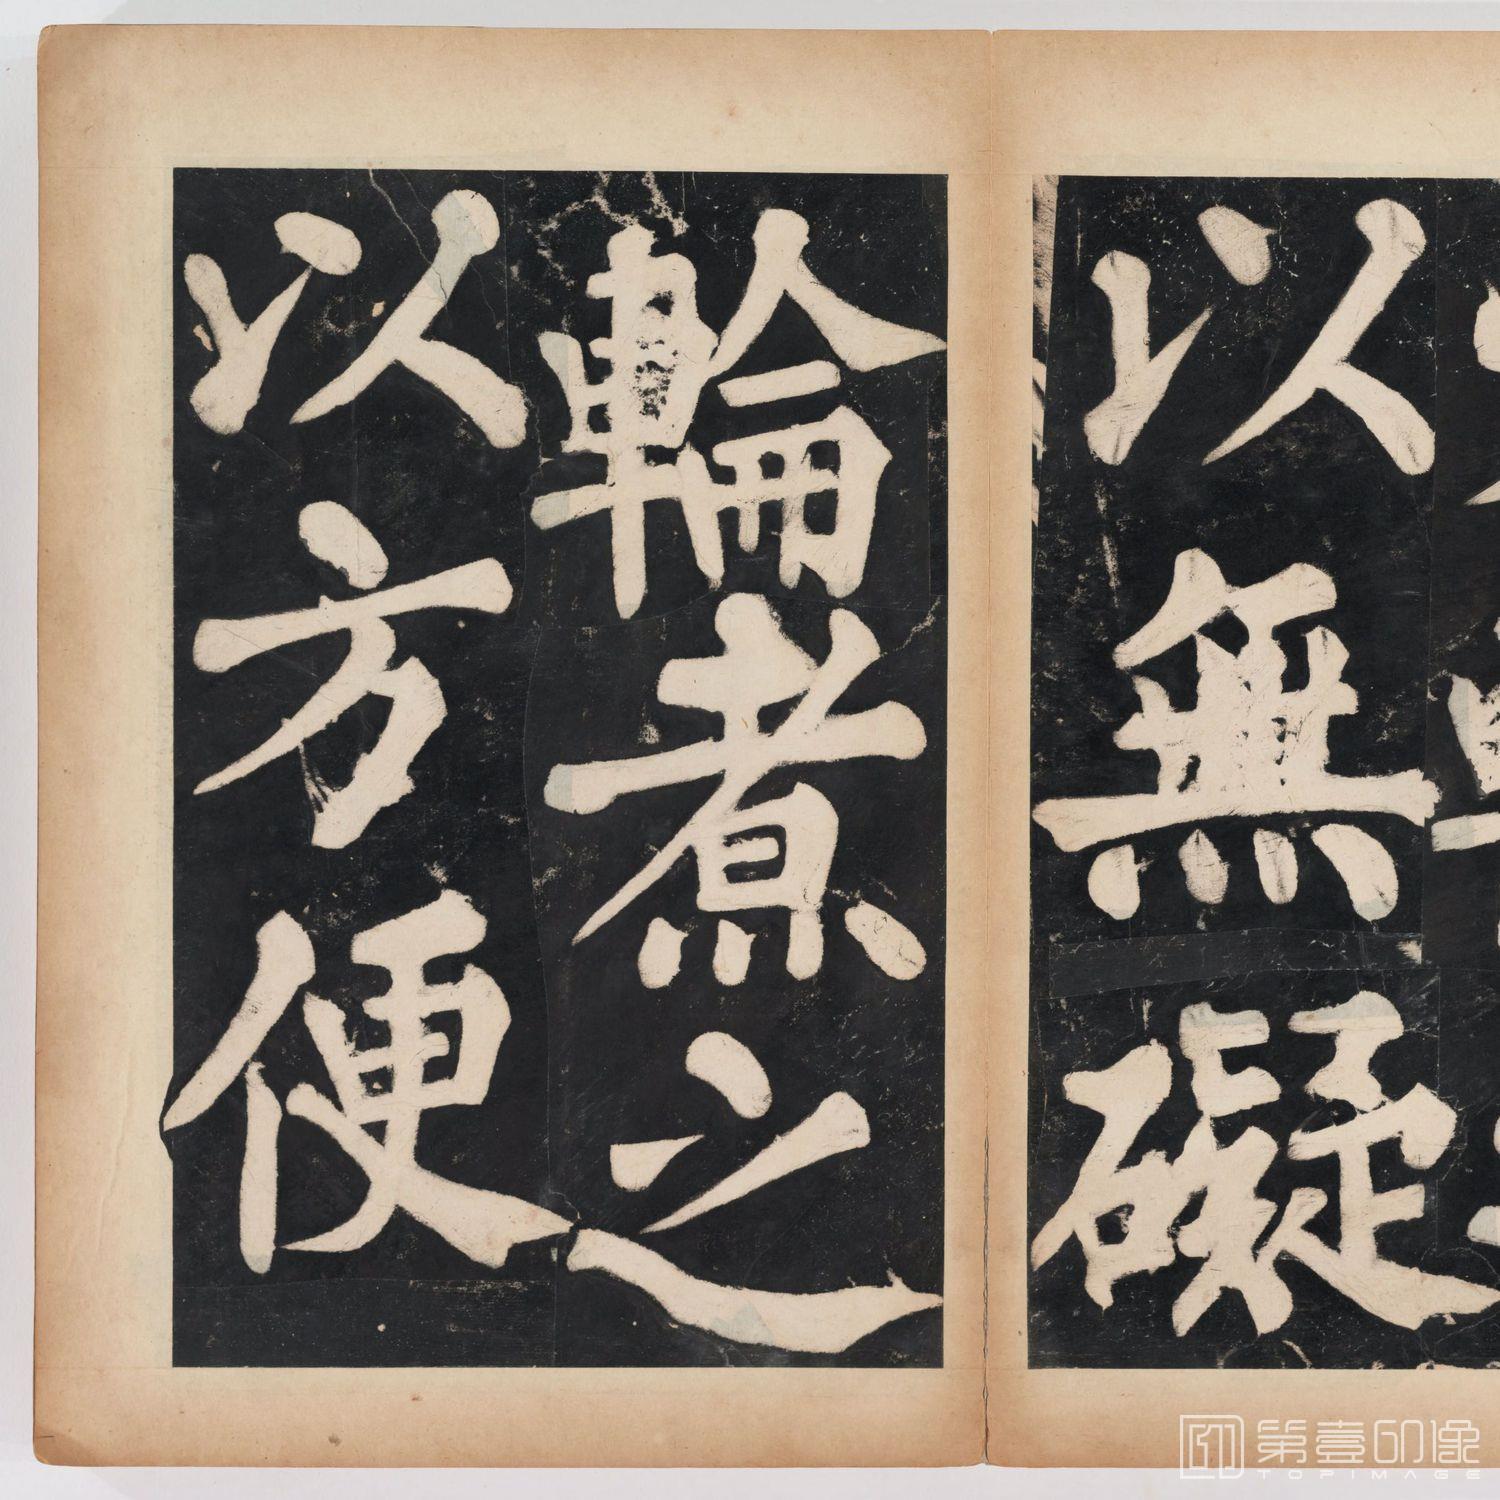 以無礙
輪煮之
以方便
第壹印像
TOPIMAGE